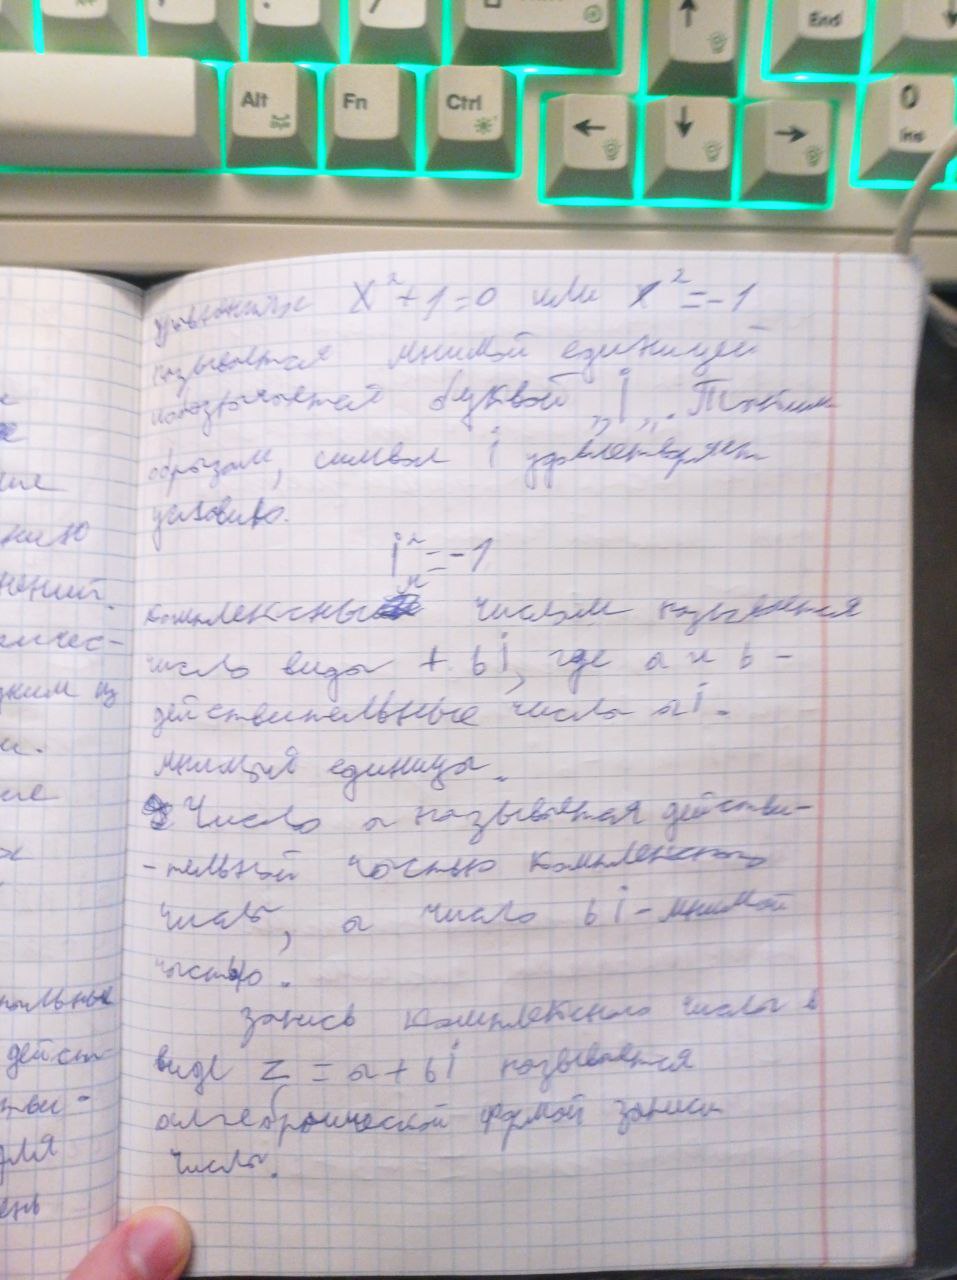 Alt
Fn
Ctrl
End
0
Ins
уравнения x²+1=0 или x²=-1
называется мнимой единицей
и обозначается буквой „i„. Таким
образом, символ i удовлетворяет
условию.
i²=-1
комплексным числом называется
число вида + bi, где a и b -
действительные числа а i -
мнимая единица.
Число a называется действи-
-тельной частью комплексного
числа, а число bi - мнимой
частью.
запись комплексного числа в
виде z = a + bi называется
алгебраической формой записи
числа.
нию
нений.
ичес-
дним из
и.
ие
нальные
дейст-
тви-
для
ень